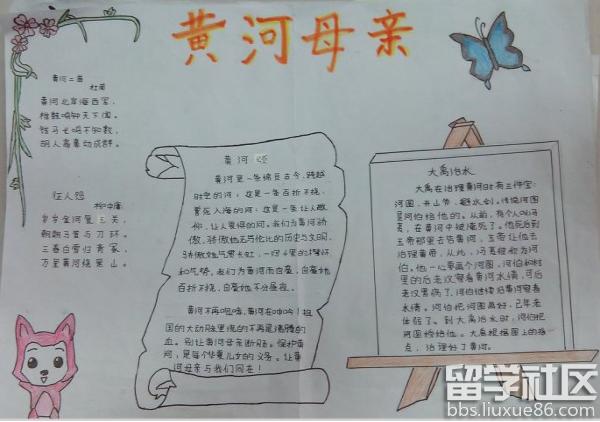 黄河母亲
黄河二首
杜甫
黄河北岸海西军,
椎鼓鸣钟天下闻。
铁马长鸣不知数,
胡人高鼻动成群。
征人怨
柳中庸
岁岁金河复玉关,
朝朝马策与刀环。
三春白雪归青冢,
万里黄河绕黑山。
黄河
黄河是一条绵亘古今,跨越
时空的河;这是一条百折不挠,
奔流入海的河;这是一条让人敬
仰,让人爱得的河。我们为黄河骄
傲,骄傲他无与伦比的历史与文明,
和气势。我们为黄河而自豪,自豪她
百折不挠,自豪她不分昼夜。
黄河不再咆哮,黄河在呻吟!祖
国的大动脉里流的不再是沸腾的
血。别让黄河母亲断流。保护黄
河,是每个华夏儿女的义务。让黄
河母亲与我们同在!
大禹治水
大禹在治理黄河时有三件宝:
河图、开山斧、避水剑。传说河图
是河伯给他的。从前,有个人叫冯
夷,在黄河中被淹死了。他死后到
玉帝那里去告黄河,玉帝让他去
治理黄帝,从此,冯夷被称为河
伯。他一心要画个河图。河伯和村
里的后老汉察看黄河水情,可后
老汉累病了,河伯继续沿黄河察看
水情。河伯把河图画好,已年老
体弱了。到大禹治水时,河伯把
河图给他。大禹根据图上的指
点,治理好了黄河。
留学社区
bbs.liuxue86.com